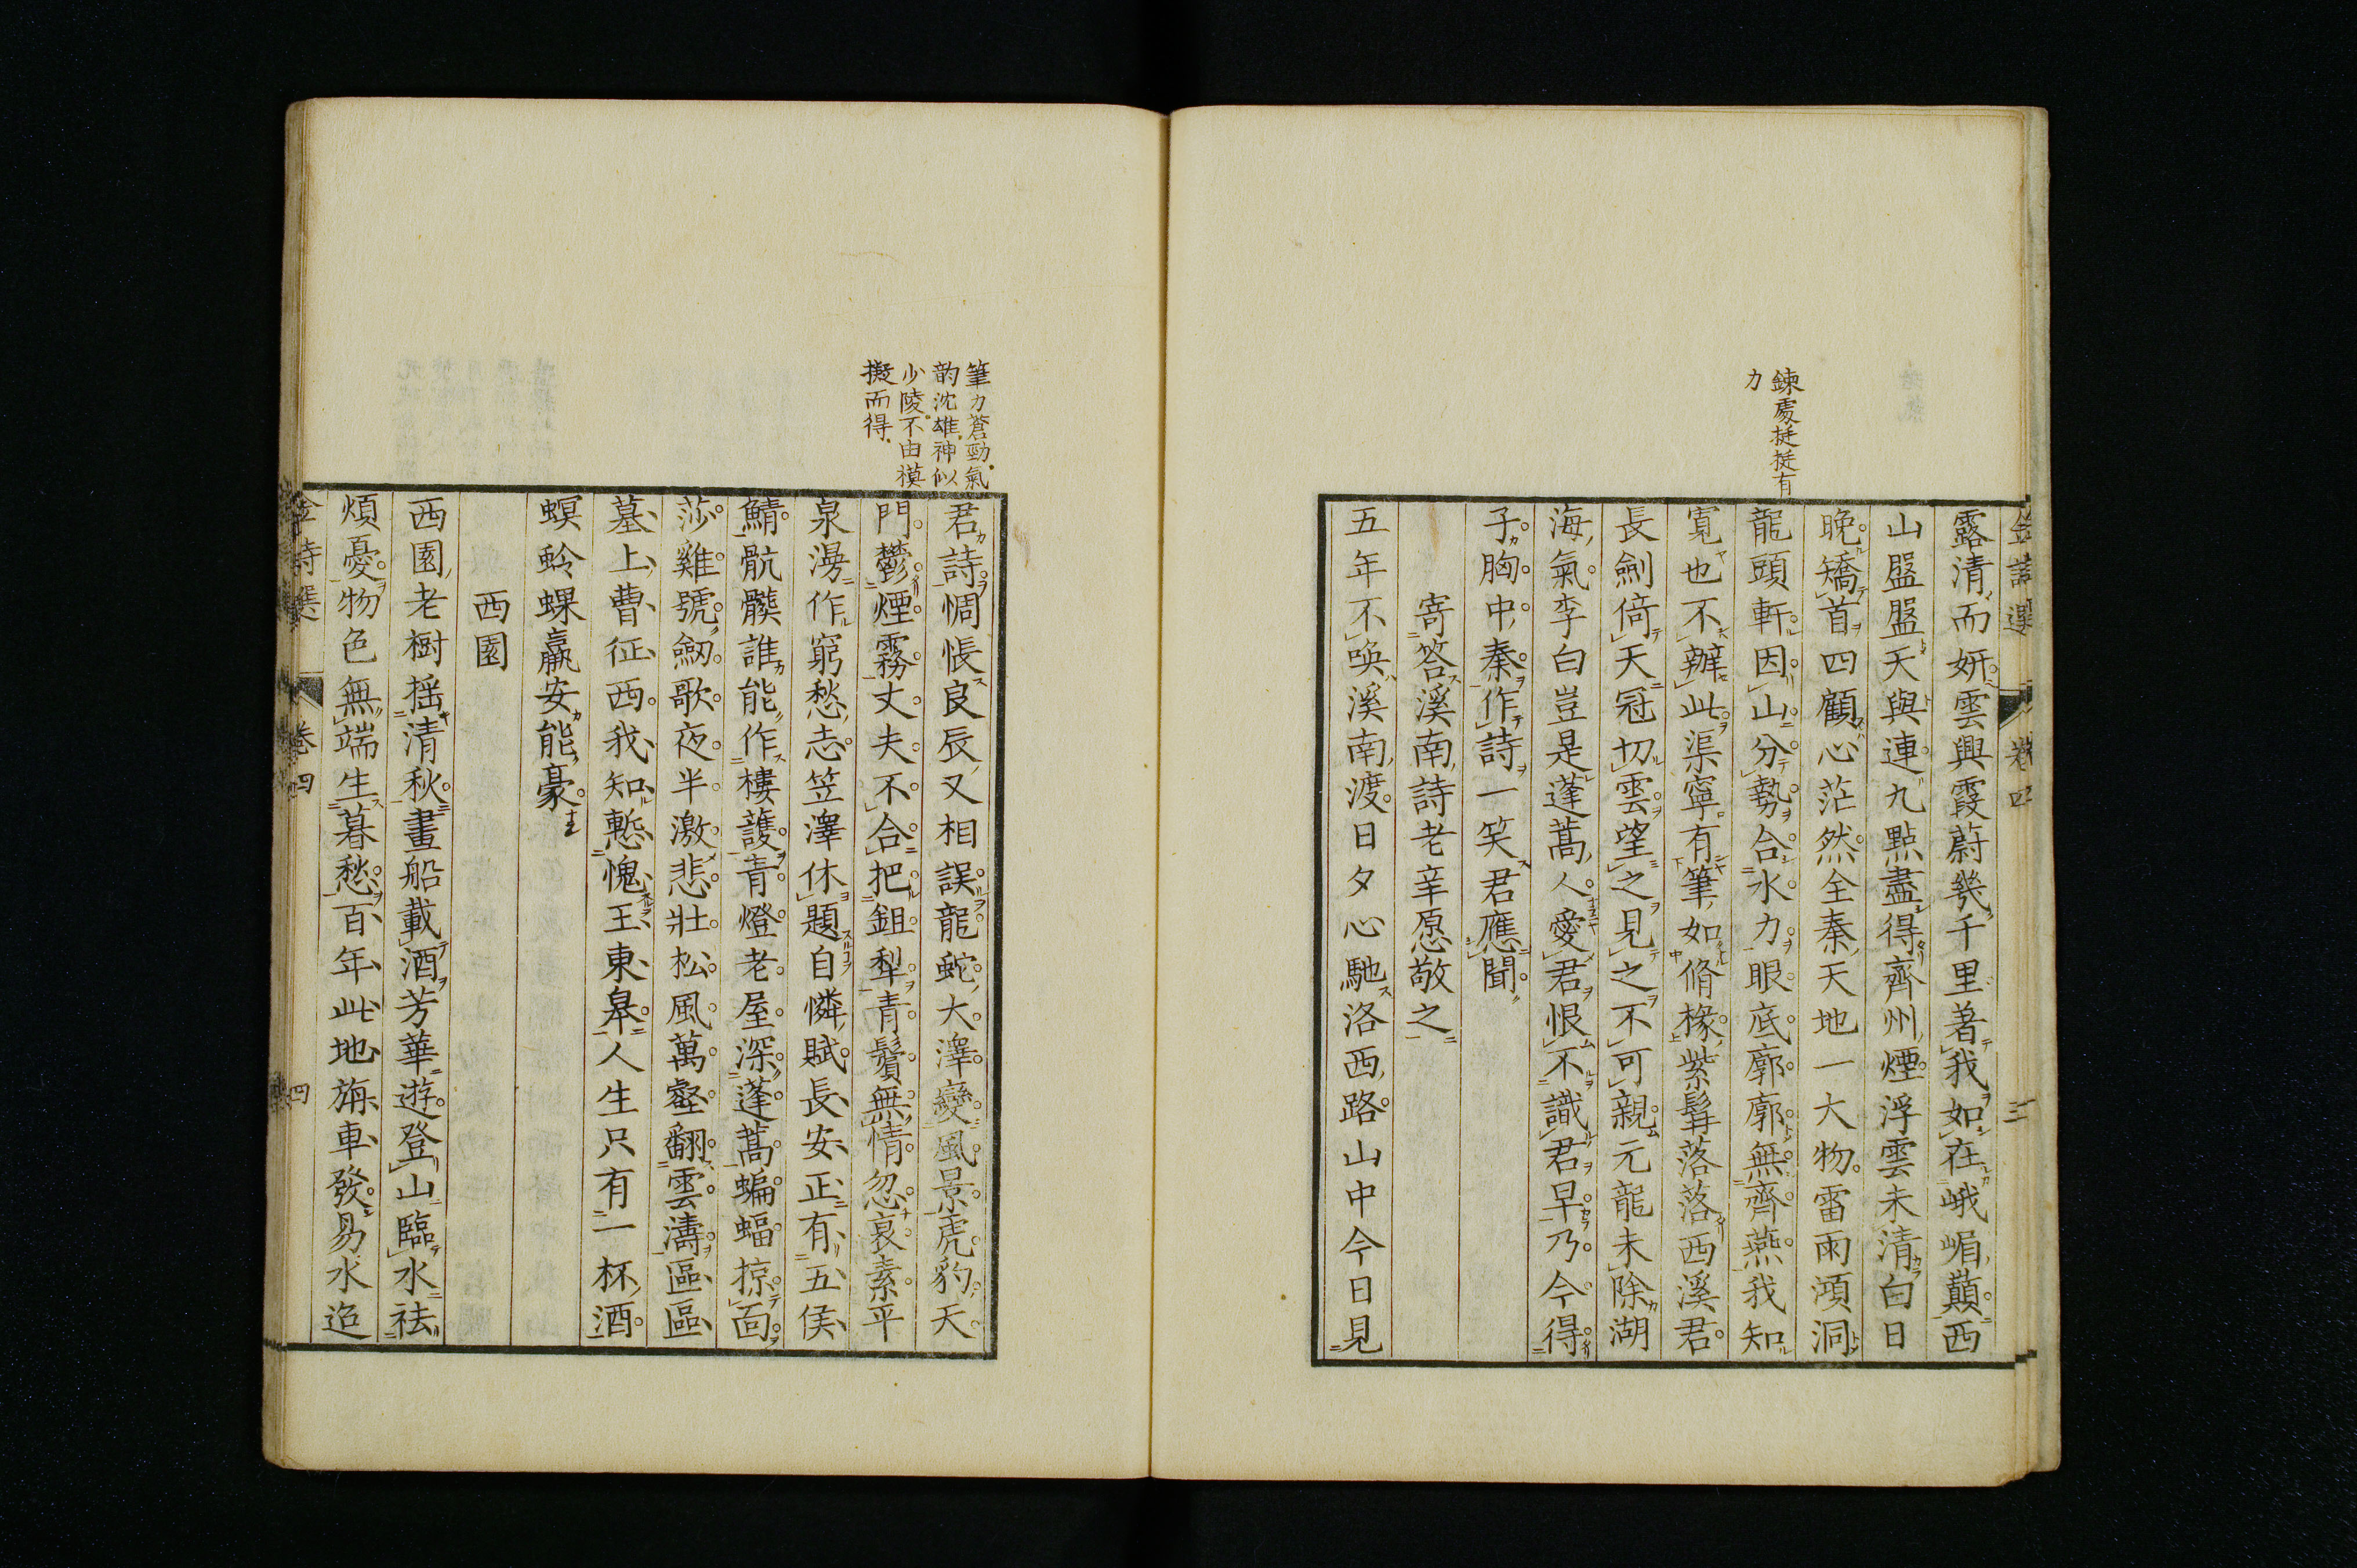 金詩選 卷四 三
鍊處挺挺有
力
露清而妍雲興霞蔚幾千里著我如在峨嵋巔西
山盤盤天與連九點盡得齊州煙浮雲未清白日
晚矯首四顧心茫然全秦天地一大物雷雨澒洞
龍頭軒因山分勢合水力眼底廓廓無齊燕我知
寬也不辦此渠寧有筆如脩椽紫髯落落西溪君
長劍倚天冠切雲望之見之不可親元龍未除湖
海氣李白豈是蓬蒿人愛君恨不識君早乃今得
子胸中秦作詩一笑君應聞
寄答溪南詩老辛愿敬之
五年不喚溪南渡日夕心馳洛西路山中今日見
筆力蒼勁氣
韵沈雄神似
少陵不由模
擬而得
君詩惆悵良辰又相誤龍蛇大澤變風景虎豹天
門鬱煙霧丈夫不合把鉏犁青鬢無情忽衰素平
泉漫作窮愁志笠澤休題自憐賦長安正有五侯
鯖骯髒誰能作樓護青燈老屋深蓬蒿蝙蝠掠面
莎雞號劒歌夜半激悲壯松風萬壑翻雲濤區區
墓上曹征西我知慙愧王東皋人生只有一杯酒
螟蛉蜾蠃安能豪
西園
西園老樹搖清秋畫船載酒芳華遊登山臨水祛
煩憂物色無端生暮愁百年此地旃車發易水迢
金詩選 卷四 四